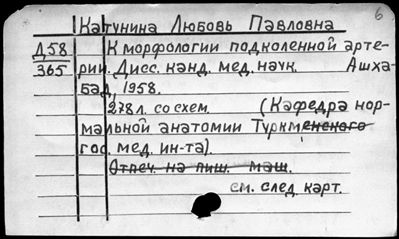 6
Катунина Любовь Павловна
Д58 К морфологии подколенной арте-
365 рии. Дисс. канд. мед. наук. Ашха-
бад, 1958.
278 л. со схем. (Кафедра нор-
мальной анатомии Туркменского
гос. мед. ин-та).
Отпеч. на пиш. маш.
см. след. карт.